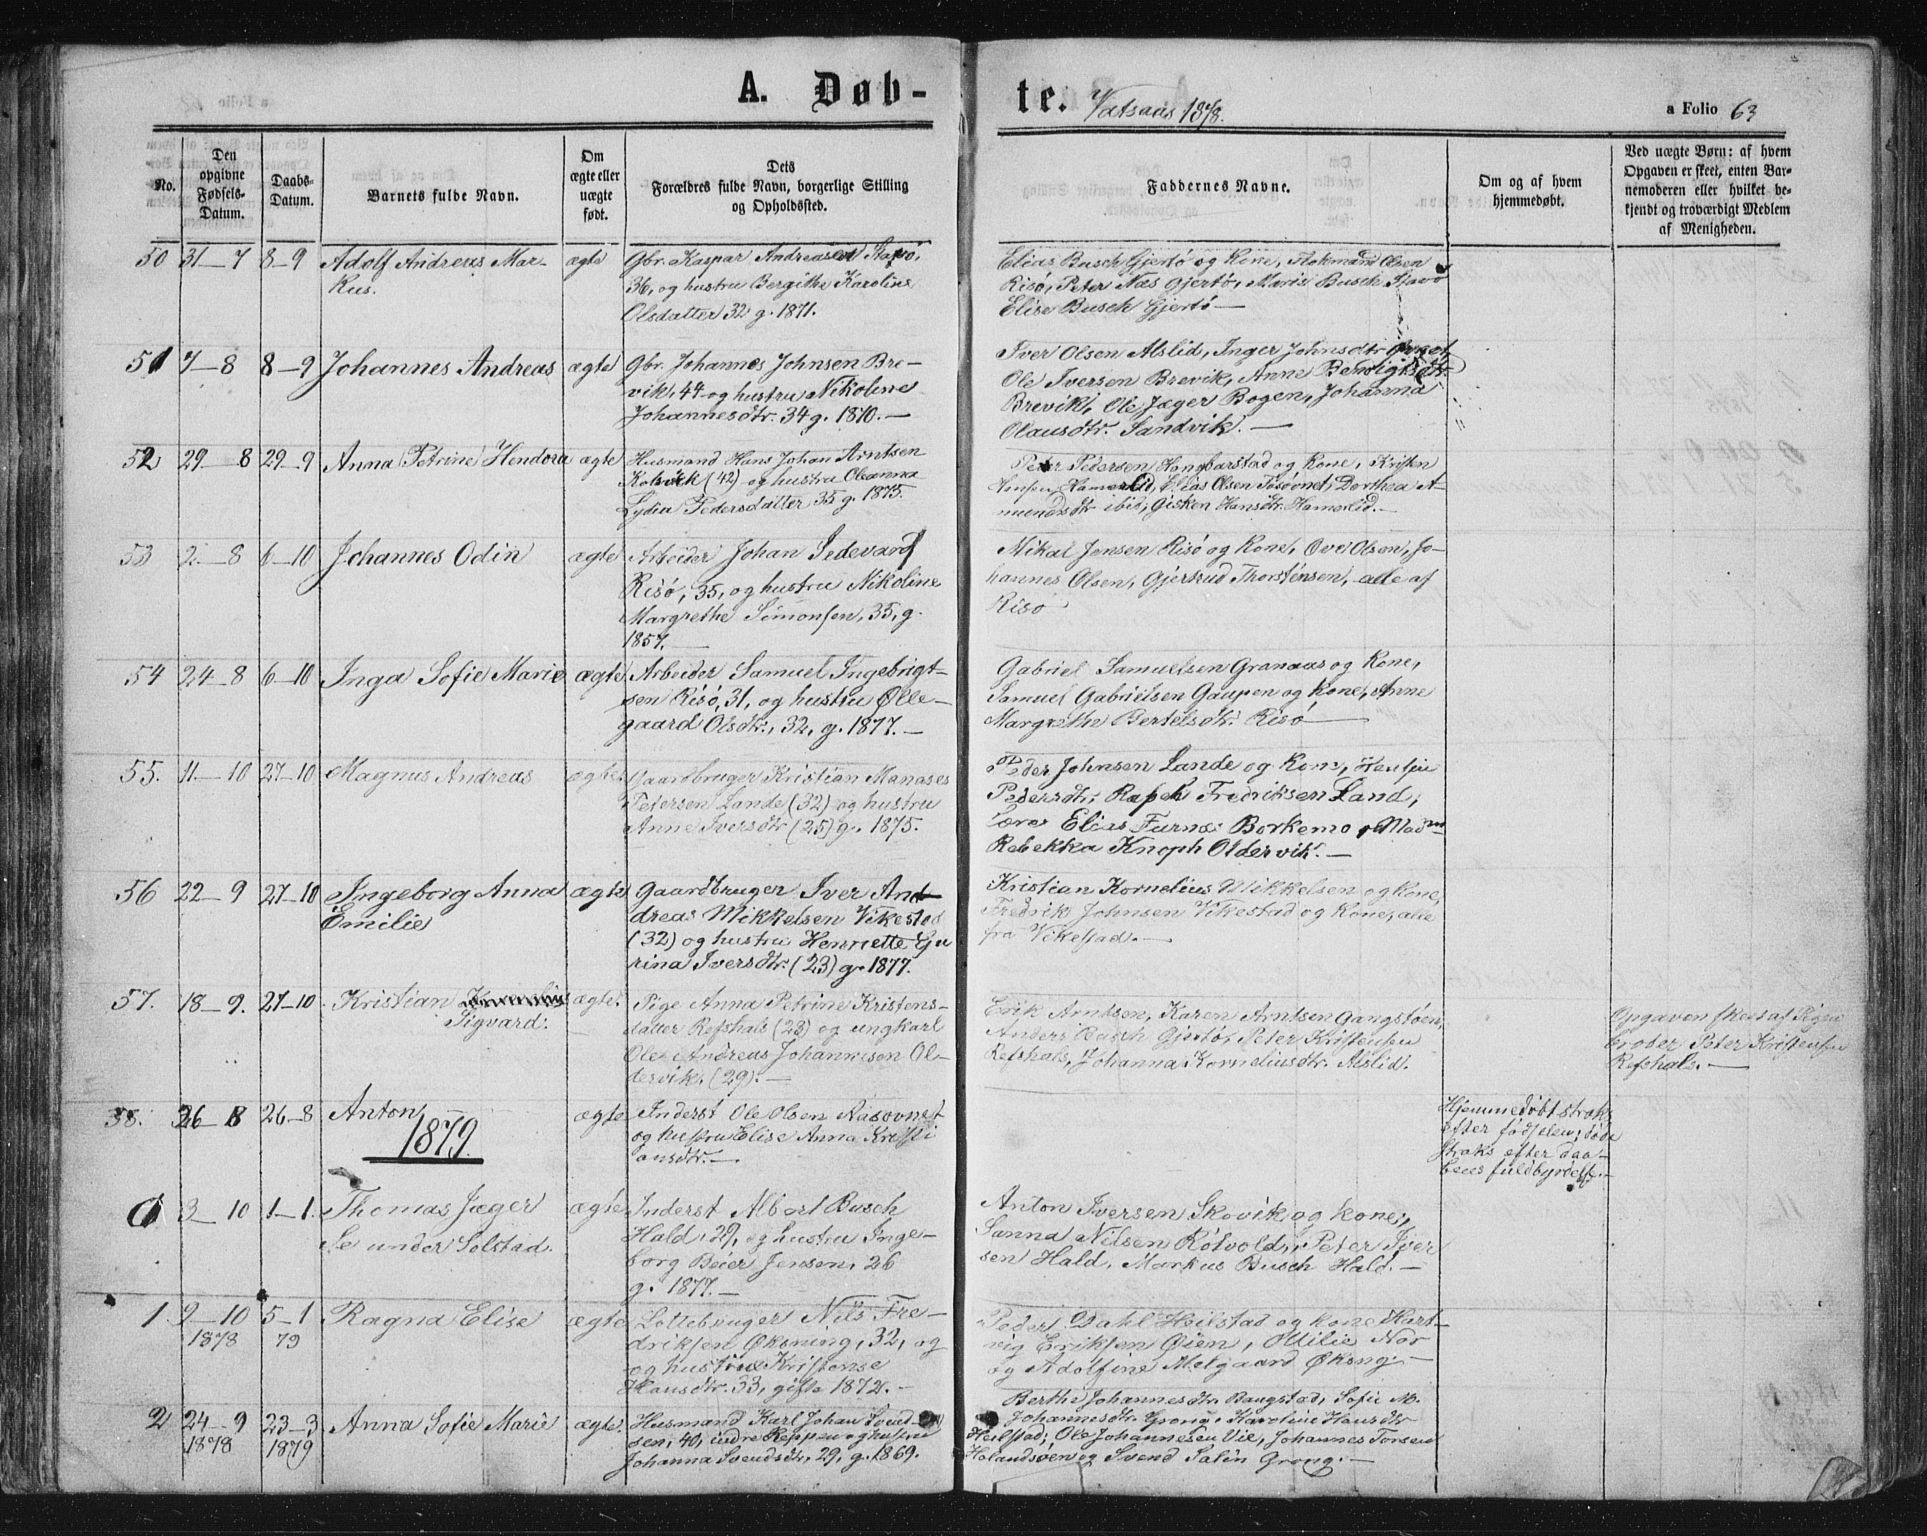 A. Døb-
te.
Vatsaas 1878.
a Folio 63
No.
Den
opgivne
Fødsels-
Datum.
Daabs-
Datum.
Barnets fulde Navn.
Om
ægte eller
uægte
født.
Dets
Forældres fulde Navn, borgerlige Stilling
og Opholdssted.
Faddernes Navne.
Om og af hvem
hjemmedøbt.
Ved uægte Børn: af hvem
Opgaven er skeet, enten Bar-
nemoderen eller hvilket be-
kjendt og troværdigt Medlem
af Menigheden.
50 31-7 8-9 Adolf Andreas Mar-
kus.
ægte
Gbr. Kaspar Andreasen Stavø,
36, og hustru Bergithe Karoline
Olsdatter 32 g. 1871.
Elias Busch Gjertø og Kone, Olsen
Risø, Peter Næs Gjertø, Maria Busch Stavø
Elise Busch Gjertø —
51 7-8 8-9 Johannes Andreas ægte
Gbr. Johannes Johnsen Bre-
vik, 44 og hustru Nikoline
Johannesdtr. 34 g. 1870. —
Iver Olsen Alslid, Inger Johnsdtr.
Ole Iversen Brevik, Anne Bendigtsdtr.
Brevik, Ole Jæger Bogen, Johanna
Olausdtr. Sandvik. —
52 29-8 29-9 Anna Petrine Hendora ægte
Husmand Hans Johan Arntsen
Kolvik (42) og hustru Oleanna
Lydia Pedersdatter 35 g. 1875.
Peder Pedersen Kongbarstad og Kone, Kristen
Hansen Hamerlid, Elias Olsen Aasovnet, Dorthea A-
mundsdtr ibid, Gisken Hansdtr. Hamerlid. —
53 2-8 6-10 Johannes Odin ægte
Arbeider Johan Sedevard
Risø, 35, og hustru Nikoline
Margrethe Simonsen, 35, g.
1857.
Nikal Jensen Risø og Kone, Ove Olsen, Jo-
hannes Olsen, Gjertrud Thorstensen, alle af
Risø
54 24-8 6-10 Inga Sofie Marie ægte
Arbeider Samuel Ingebrigt-
sen Risø, 31, og hustru Olle-
gaard Olsdtr., 32, g. 1877. —
Gabriel Samuelsen Granaas og Kone,
Samuel Gabrielsen Gaupen og Kone, Anne
Margrethe Bertelsdtr. Risø
55. 11-10 27-10 Magnus Andreas ægte
Gaardbruger Kristian Manases
Petersen Lande (32) og hustru
Anne Iversdtr (25) g. 1875.
Peder Johnsen Lande og Kone,
Pedersdtr, Fredriksen Land,
Elias Furnæs Borkemo, Madm
Rebekka Knoph Oldervik. —
56 22-9 27-10 Ingeborg Anna
Emilie
ægte
Gaardbruger Iver And-
dreas Mikkelsen Vikestad
(32) og hustru Henriette Gu
rina Iversdtr. (23) g. 1877.
Kristian Kornelius Mikkelsen og Kone,
Fredrik Johnsen Vikestad og Kone, alle
fra Vikestad. —
57. 18-9. 27-10. Kristian Kornelius
Sigvard.
ægte.
Pige Anna Petrine Kristens-
datter Refshals (23) og ungkarl
Ole Andreas Johannesen Ol-
dervik. (29). —
Erik Arntsen, Karen Arntsen Gangstøen,
Anders Busch Gjertø, Peter Kristensen
Refshals, Johanna Korneliusdtr. Alslid.
Opgaven skeet af Pigen
broder Peter Kristensen
Refshals. —
58. 26-8 26-8 Anton ægte
Inderst Ole Olsen Aasovnet
og hustru Elise Anna Kristi
ansdtr. —
Hjemmedøbt straks
efter fødselen; døde
straks efter daa-
bens fuldbyrdelse. —
1879.
3-10 1-1. Thomas Jæger
Se under Solstad.
ægte
Inderst Albert Busch
Hald, 29, og hustru Inge-
borg Beier Jensen, 26
g. 1877. —
Anton Iversen Skovik og Kone,
Sanna Nilsen Rolvold, Peter Iver
sen Hald, Markus Busch Hald. —
1 9-10
1878
5-1
79
Ragna Elise ægte
Lottebruger Nils Fre-
driksen Øksning, 32, og
og hustru Kristense
Hansdtr. 33, gifte 1872. —
Peder Dahl Heilstad og Kone Hart-
vig Eriksen Øien, Otilie Nor
og Adolfine Molgaard Økeng. —
2 24-9
1878
23-3
1879
Anna Sofie Marie ægte.
Husmand Karl Johan Svend-
sen, 40, indre Reppen og hustru
Johanna Svendsdtr, 29, g. 1869.
Berthe Johannesdtr. Bangstad, Sofie M.
Johannesdtr. Grong, Karoline Hansdtr
Heilstad, Ole Johannesen Vie, Johannes Torsen
Holandsøen og Svend Salin Grong. —